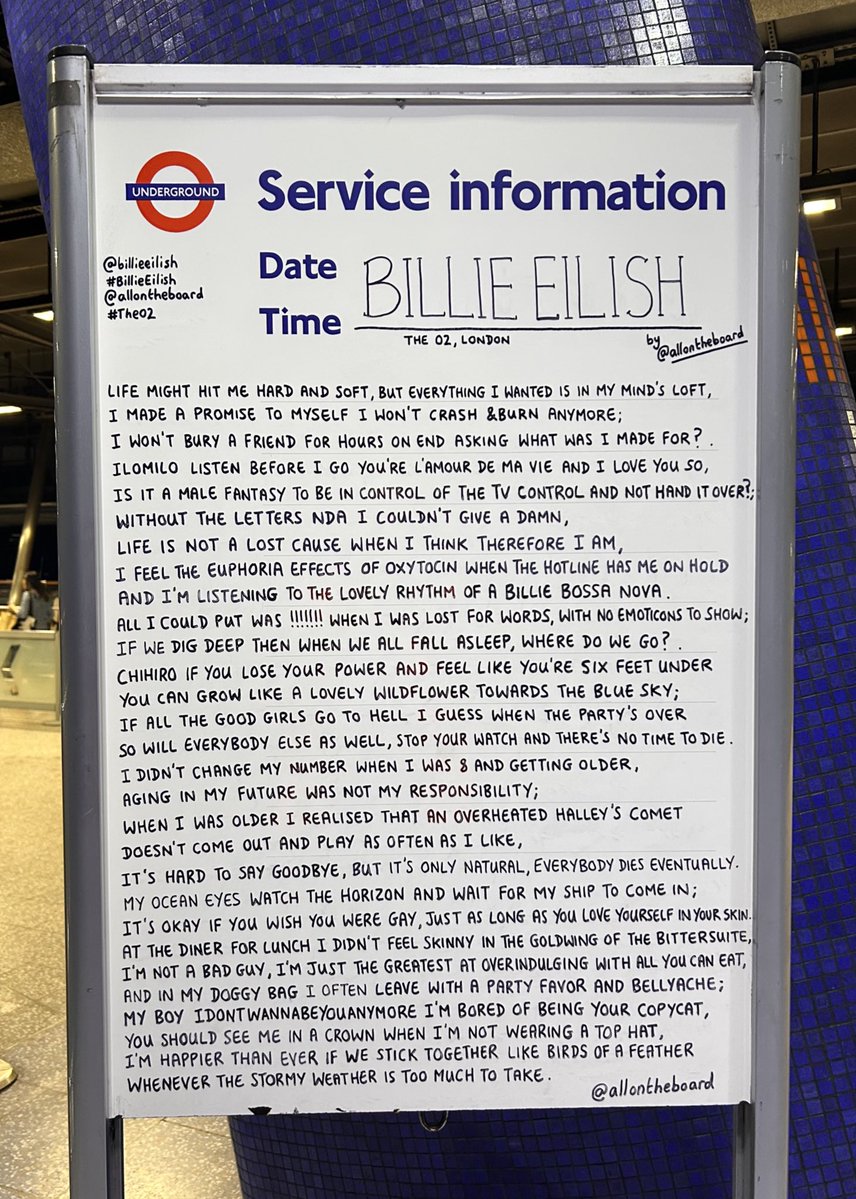 UNDERGROUND
Service information
@billieeilish
#BillieEilish
@allontheboard
#TheO2
Date
Time
BILLIE EILISH
THE O2, LONDON
by @allontheboard
LIFE MIGHT HIT ME HARD AND SOFT, BUT EVERYTHING I WANTED IS IN MY MIND'S LOFT,
I MADE A PROMISE TO MYSELF I WON'T CRASH & BURN ANYMORE;
I WON'T BURY A FRIEND FOR HOURS ON END ASKING WHAT WAS I MADE FOR?.
ILOMILO LISTEN BEFORE I GO YOU'RE L'AMOUR DE MA VIE AND I LOVE YOU SO,
IS IT A MALE FANTASY TO BE IN CONTROL OF THE TV CONTROL AND NOT HAND IT OVER?;
WITHOUT THE LETTERS NDA I COULDN'T GIVE A DAMN,
LIFE IS NOT A LOST CAUSE WHEN I THINK THEREFORE I AM,
I FEEL THE EUPHORIA EFFECTS OF OXYTOCIN WHEN THE HOTLINE HAS ME ON HOLD
AND I'M LISTENING TO THE LOVELY RHYTHM OF A BILLIE BOSSA NOVA.
ALL I COULD PUT WAS !!!!!!! WHEN I WAS LOST FOR WORDS, WITH NO EMOTICONS TO SHOW;
IF WE DIG DEEP THEN WHEN WE ALL FALL ASLEEP, WHERE DO WE GO?.
CHIHIRO IF YOU LOSE YOUR POWER AND FEEL LIKE YOU'RE SIX FEET UNDER
YOU CAN GROW LIKE A LOVELY WILDFLOWER TOWARDS THE BLUE SKY;
IF ALL THE GOOD GIRLS GO TO HELL I GUESS WHEN THE PARTY'S OVER
SO WILL EVERYBODY ELSE AS WELL, STOP YOUR WATCH AND THERE'S NO TIME TO DIE.
I DIDN'T CHANGE MY NUMBER WHEN I WAS 8 AND GETTING OLDER,
AGING IN MY FUTURE WAS NOT MY RESPONSIBILITY;
WHEN I WAS OLDER I REALISED THAT AN OVERHEATED HALLEY'S COMET
DOESN'T COME OUT AND PLAY AS OFTEN AS I LIKE,
IT'S HARD TO SAY GOODBYE, BUT IT'S ONLY NATURAL, EVERYBODY DIES EVENTUALLY.
MY OCEAN EYES WATCH THE HORIZON AND WAIT FOR MY SHIP TO COME IN;
IT'S OKAY IF YOU WISH YOU WERE GAY, JUST AS LONG AS YOU LOVE YOURSELF IN YOUR SKIN.
AT THE DINER FOR LUNCH I DIDN'T FEEL SKINNY IN THE GOLDWING OF THE BITTERSUITE,
I'M NOT A BAD GUY, I'M JUST THE GREATEST AT OVERINDULGING WITH ALL YOU CAN EAT,
AND IN MY DOGGY BAG I OFTEN LEAVE WITH A PARTY FAVOR AND BELLYACHE;
MY BOY IDONTWANNABEYOUANYMORE I'M BORED OF BEING YOUR COPYCAT,
YOU SHOULD SEE ME IN A CROWN WHEN I'M NOT WEARING A TOP HAT,
I'M HAPPIER THAN EVER IF WE STICK TOGETHER LIKE BIRDS OF A FEATHER
WHENEVER THE STORMY WEATHER IS TOO MUCH TO TAKE.
@allontheboard